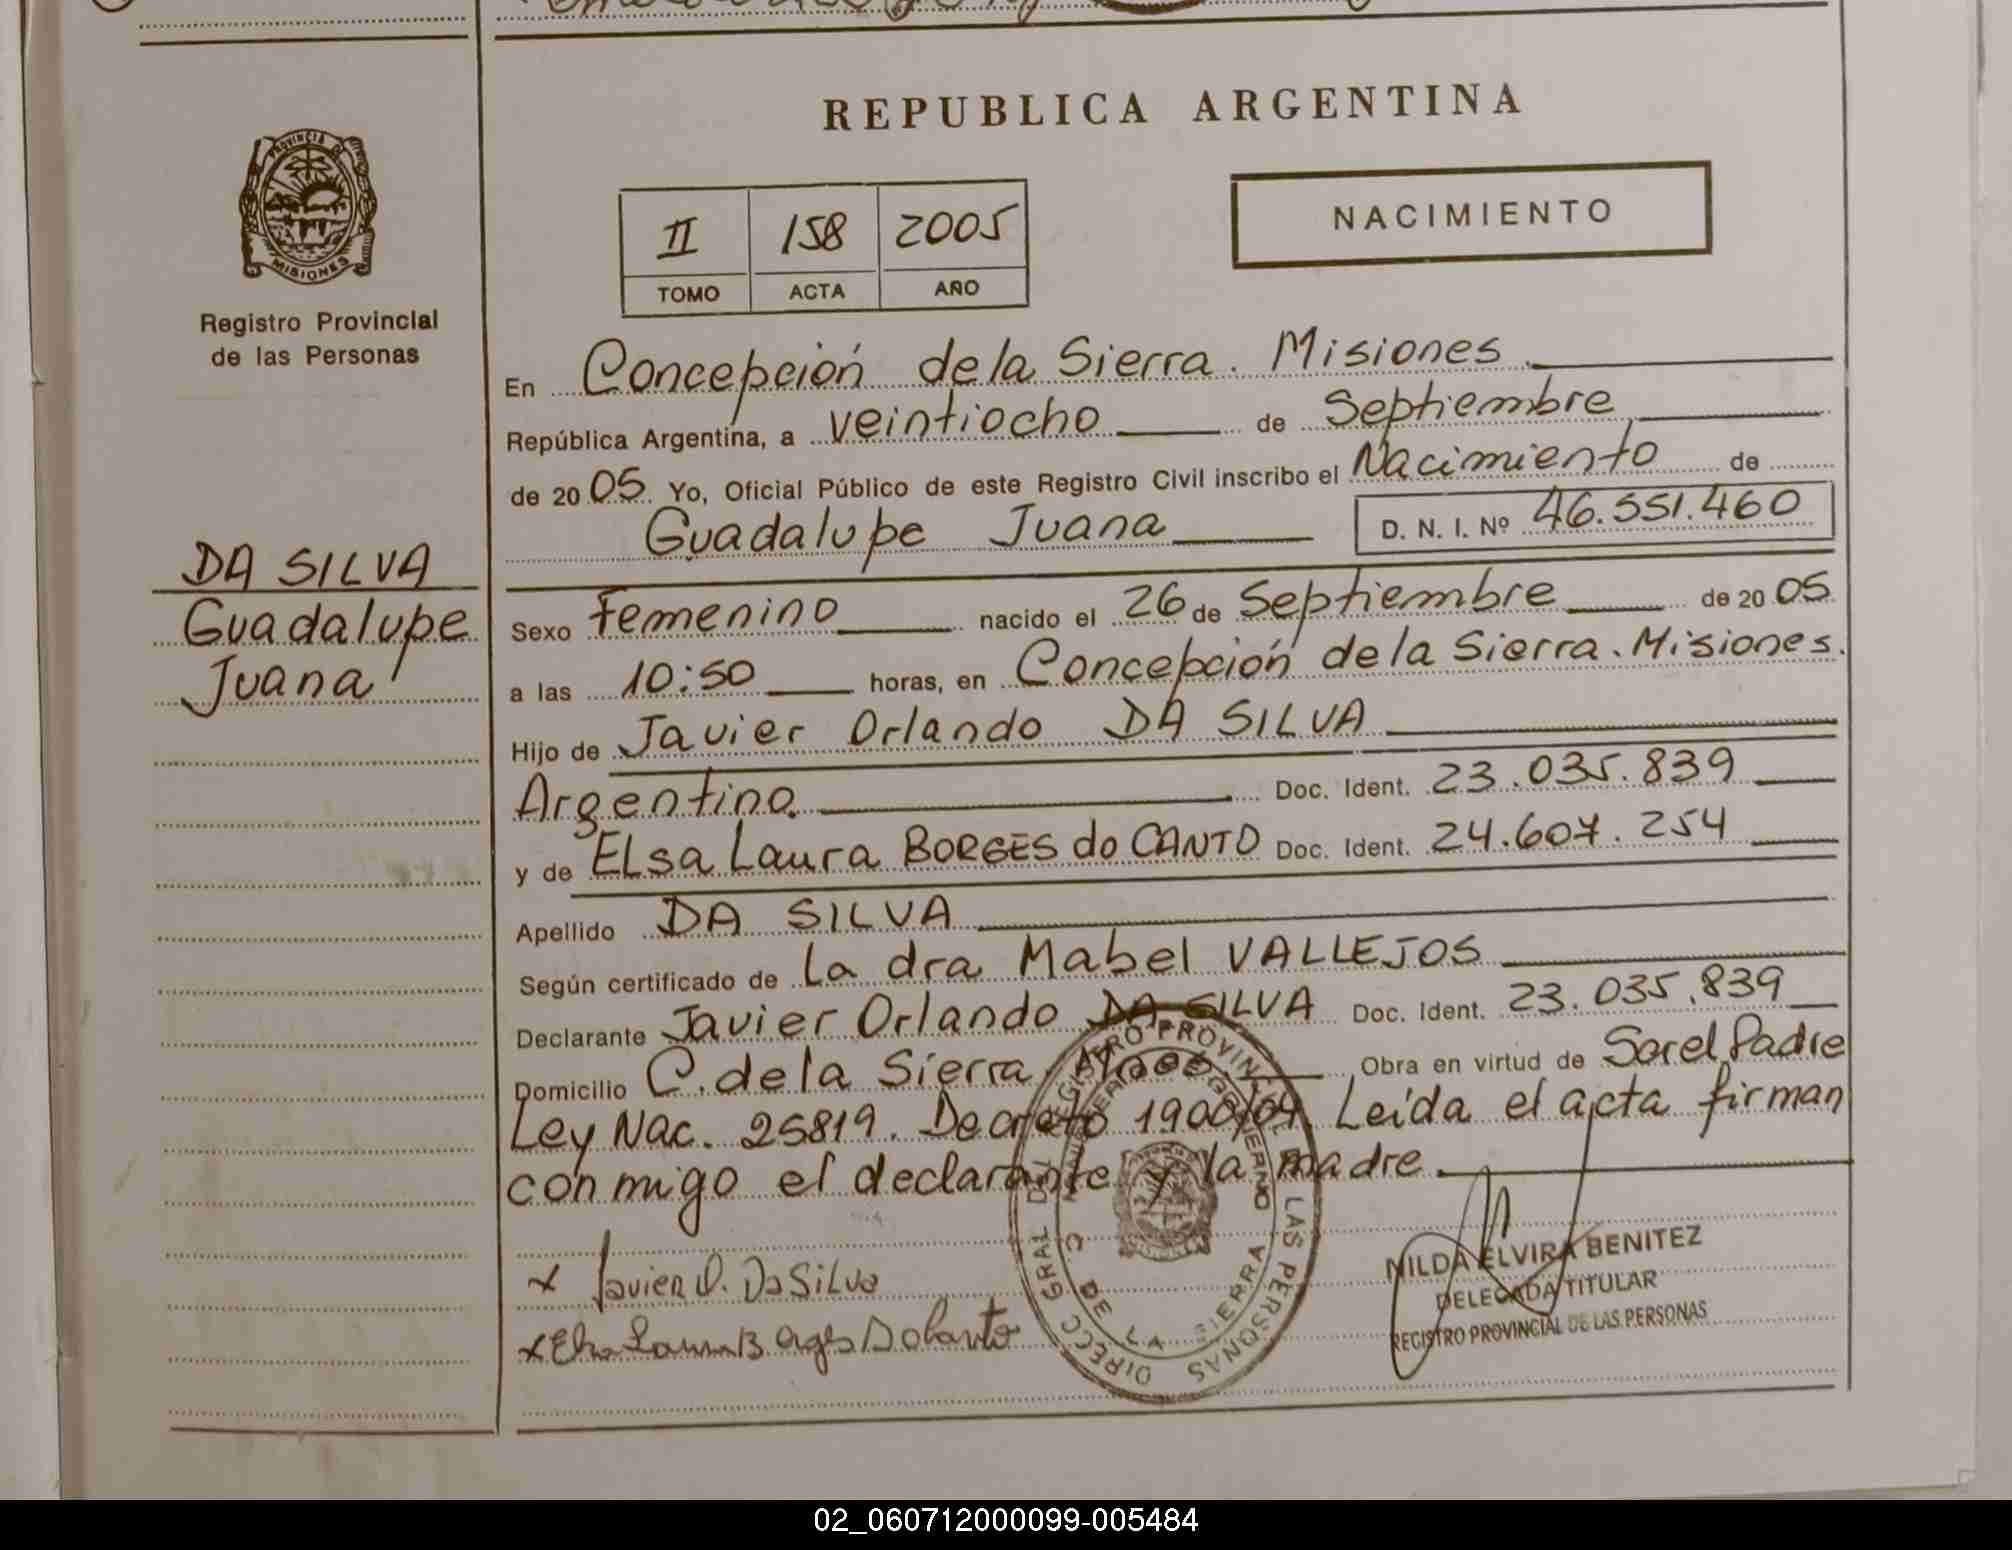 REPUBLICA ARGENTINA
PROVINCIA DE
MISIONES
Registro Provincial
de las Personas
II 158 2005
TOMO ACTA AÑO
NACIMIENTO
DA SILVA
Guadalupe
Juana
En Concepción de la Sierra. Misiones
República Argentina, a veintiocho de Septiembre
de 2005 Yo, Oficial Público de este Registro Civil inscribo el Nacimiento de
Guadalupe Juana D. N. I. Nº 46.551.460
Sexo Femenino nacido el 26 de Septiembre de 2005
a las 10:50 horas, en Concepción de la Sierra. Misiones.
Hijo de Javier Orlando DA SILVA
Argentino Doc. Ident. 23.035.839
y de Elsa Laura BORGES do CANTO Doc. Ident. 24.607.254
Apellido DA SILVA
Según certificado de La dra Mabel VALLEJOS
Declarante Javier Orlando DA SILVA Doc. Ident. 23.035.839
Domicilio C. de la Sierra. Obra en virtud de Ser el Padre
Ley Nac. 25819. Decreto 1900/04. Leída el acta firman
conmigo el declarante y la madre
x Javier O. Da Silva
x Elsa Laura Borges Do Canto
DIRECC GRAL DEL REGISTRO PROVINCIAL DE LAS PERSONAS
C. DE LA SIERRA
NILDA ELVIRA BENITEZ
DELEGADA TITULAR
REGISTRO PROVINCIAL DE LAS PERSONAS
02_060712000099-005484